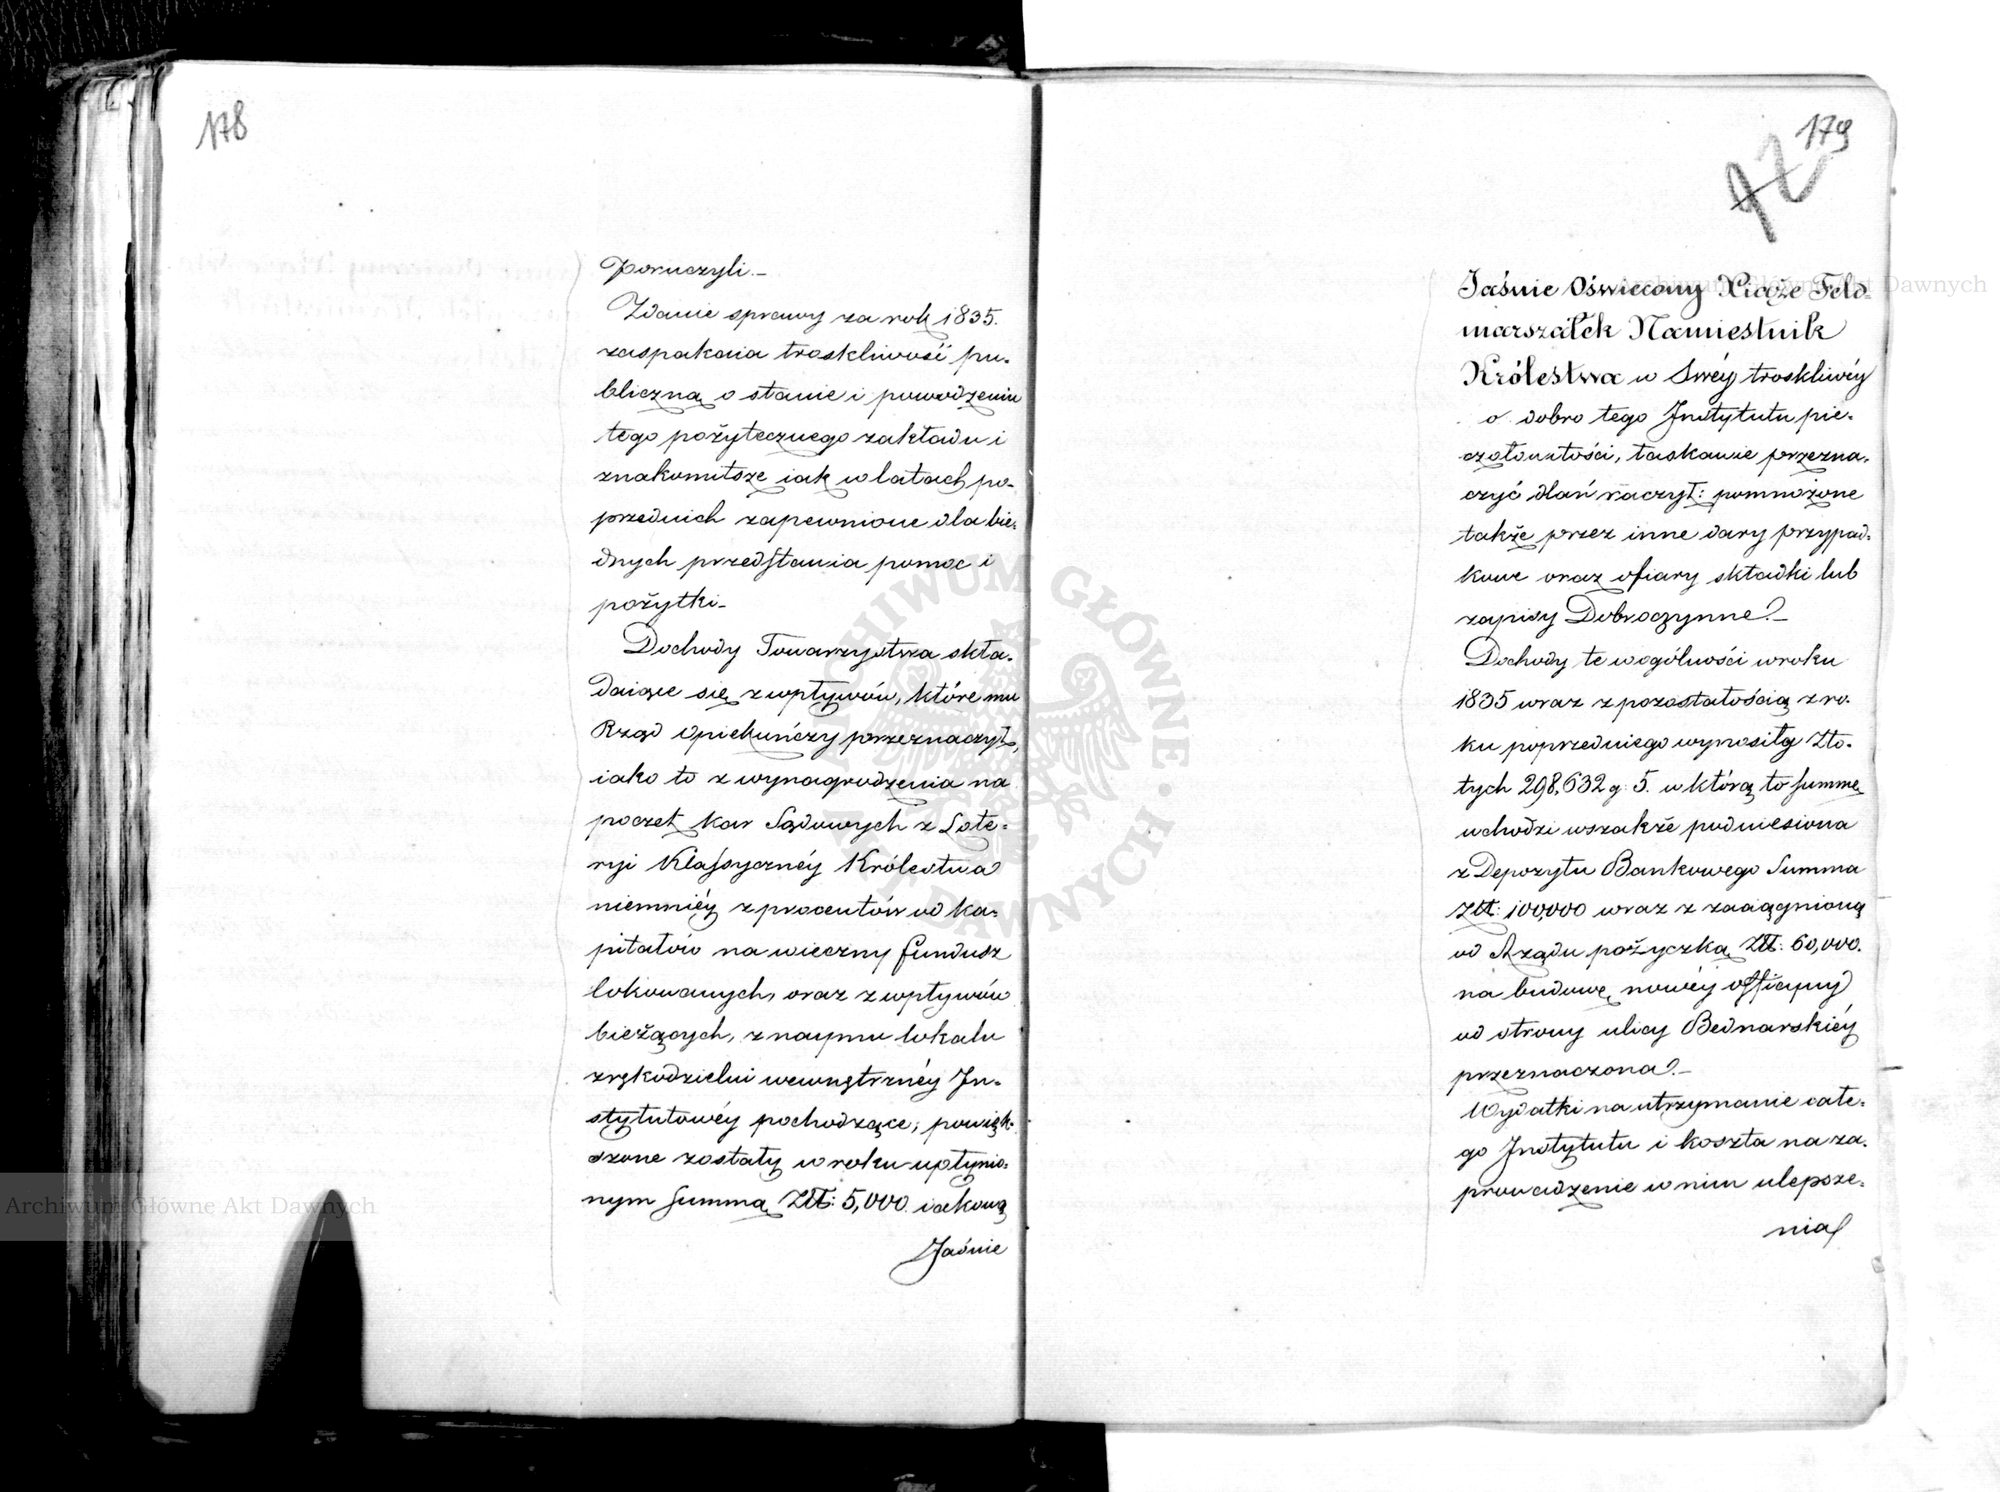 178
Poruczyli.—
Zdanie sprawy za rok 1835.
zaspakaia troskliwość pu-
bliczną o stanie i powodzeniu
tego pożytecznego zakładu i
znakomitsze iak w latach po-
przednich zapewnione dla bie-
dnych przedstawia pomoc i
pożytki—
Dochody Towarzystwa skła-
daiące się z wpływów, które mu
Rząd Opiekuńczy przeznaczył,
iako to z wynagrodzenia na
poczet kar Sądowych z Lote-
ryi Klassycznéy Królestwa
niemniéy z procentów od ka-
pitałów na wieczny fundusz
lokowanych, oraz z wpływów
bieżących, z naymu lokalu
z rękodzielni wewnętrznéy In-
stytutowéy pochodzące, powięk-
szone zostały w roku upłynio-
nym summą Złł: 5,000. iakową
Jaśnie
179
42
Jaśnie Oświecony Xiąże Feld-
marszałek Namiestnik
Królestwa w Swéy troskliwéy
o dobro tego Instytutu pie-
czołowitości, łaskawie przezna-
czyć dlań raczył: pomnożone
także przez inne dary przypad-
kowe oraz ofiary składki lub
zapisy Dobroczynne.—
Dochody te wogólności w roku
1835 wraz z pozostałością z ro-
ku poprzedniego wynosiły Zło-
tych 298,632 g: 5. w którą to summę
uchodzi wszakże podniesiona
z Depozytu Bankowego Summa
Złł: 100,000 wraz z zaciągnioną
od Rządu pożyczką Złł: 60,000.
na budowę nowéy officyny
od strony ulicy Bednarskiéy
przeznaczona.—
Wydatki na utrzymanie całe-
go Instytutu i koszta na za-
prowadzenie w nim ulepsze-
nia
Archiwum Główne Akt Dawnych
Archiwum Główne Akt Dawnych
ARCHIWUM GŁÓWNE AKT DAWNYCH